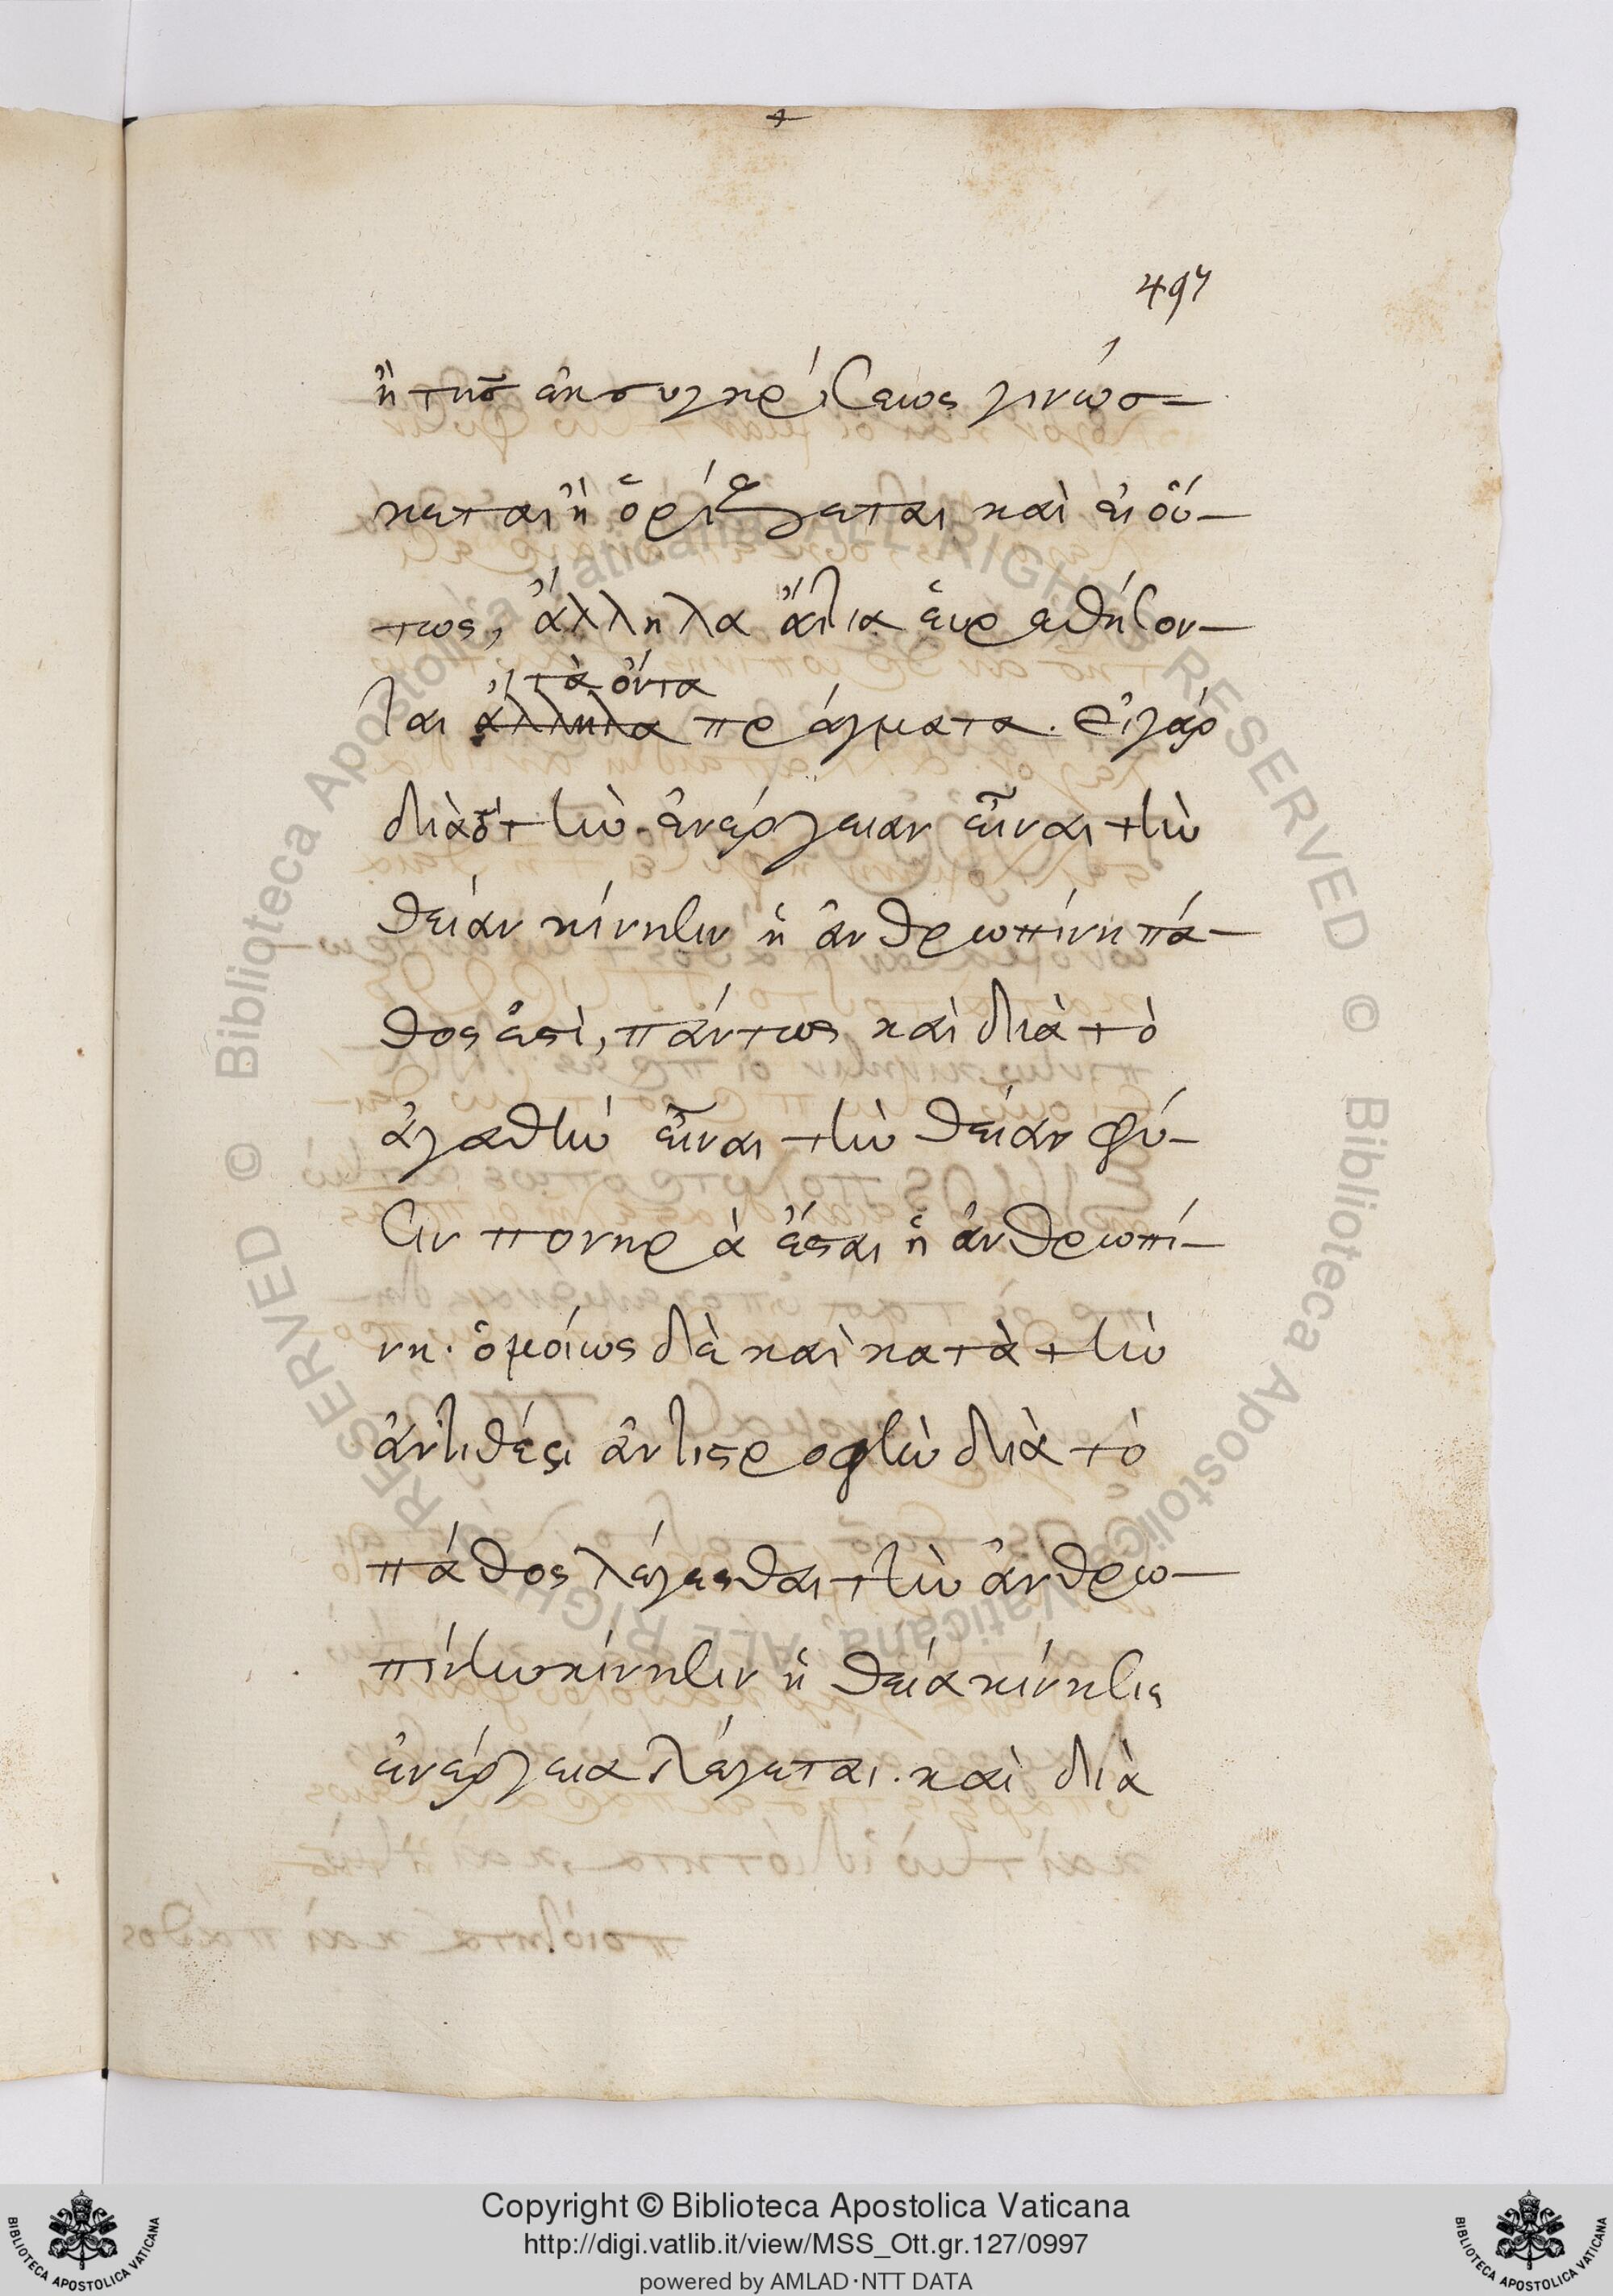 497
ἢ τῆς ἐκ συγκρίσεως γινώσ-
κεται ἢ ὁρίζεται καὶ εἰ οὕ-
τως, ἄλληλα αἴτια εὑρεθήσον-
τὰ ὄντα
ται ἄλληλα πράγματα. εἰ γὰρ
διὰ τὸ τὴν ἐνέργειαν εἶναι τὴν
θείαν κίνησιν ἡ ἀνθρωπίνη πά-
θος ἐστὶ, πάντως καὶ διὰ τὸ
ἀγαθὴν εἶναι τὴν θείαν φύ-
σιν πονηρὰ ἔσται ἡ ἀνθρωπί-
νη. ὁμοίως δὲ καὶ κατὰ τὴν
ἀντιθέσει ἀντιστροφὴν διὰ τὸ
πάθος λέγεσθαι τὴν ἀνθρω-
πίνην κίνησιν ἡ θεία κίνησις
ἐνέργεια λέγεται. καὶ διὰ
Copyright © Biblioteca Apostolica Vaticana
http://digi.vatlib.it/view/MSS_Ott.gr.127/0997
powered by AMLAD·NTT DATA
BIBLIOTECA APOSTOLICA VATICANA
BIBLIOTECA APOSTOLICA VATICANA
© Biblioteca Apostolica Vaticana ALL RIGHTS RESERVED
© Biblioteca Apostolica Vaticana ALL RIGHTS RESERVED